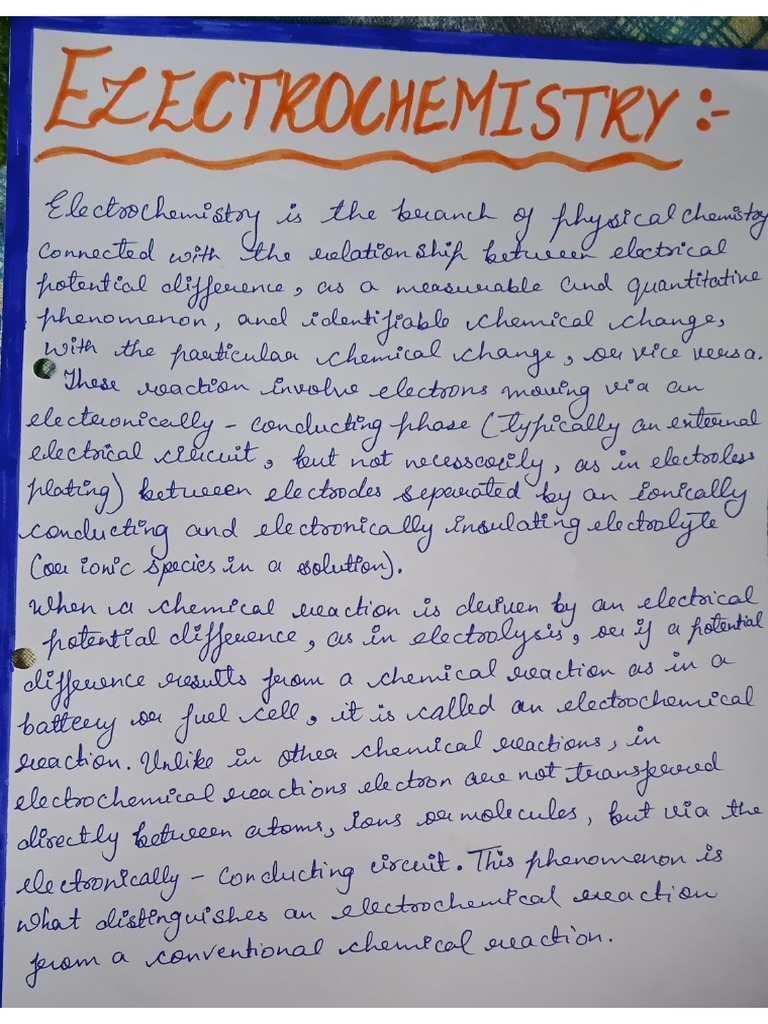 ELECTROCHEMISTRY :-
Electrochemistry is the branch of physical chemistry
connected with the relationship between electrical
potential difference, as a measurable and quantitative
phenomenon, and identifiable chemical change,
with the particular chemical change, or vice versa.
These reaction involve electrons moving via an
electronically - conducting phase (typically an external
electrical circuit, but not necesscarily, as in electroless
plating) between electrodes separated by an ionically
conducting and electronically insulating electrolyte
(or ionic species in a solution).
When a chemical reaction is driven by an electrical
potential difference, as in electrolysis, or if a potential
difference results from a chemical reaction as in a
battery or fuel cell, it is called an electrochemical
reaction. Unlike in other chemical reactions, in
electrochemical reactions electron are not transferred
directly between atoms, ions or molecules, but via the
electronically - conducting circuit. This phenomenon is
what distinguishes an electrochemical reaction
from a conventional chemical reaction.